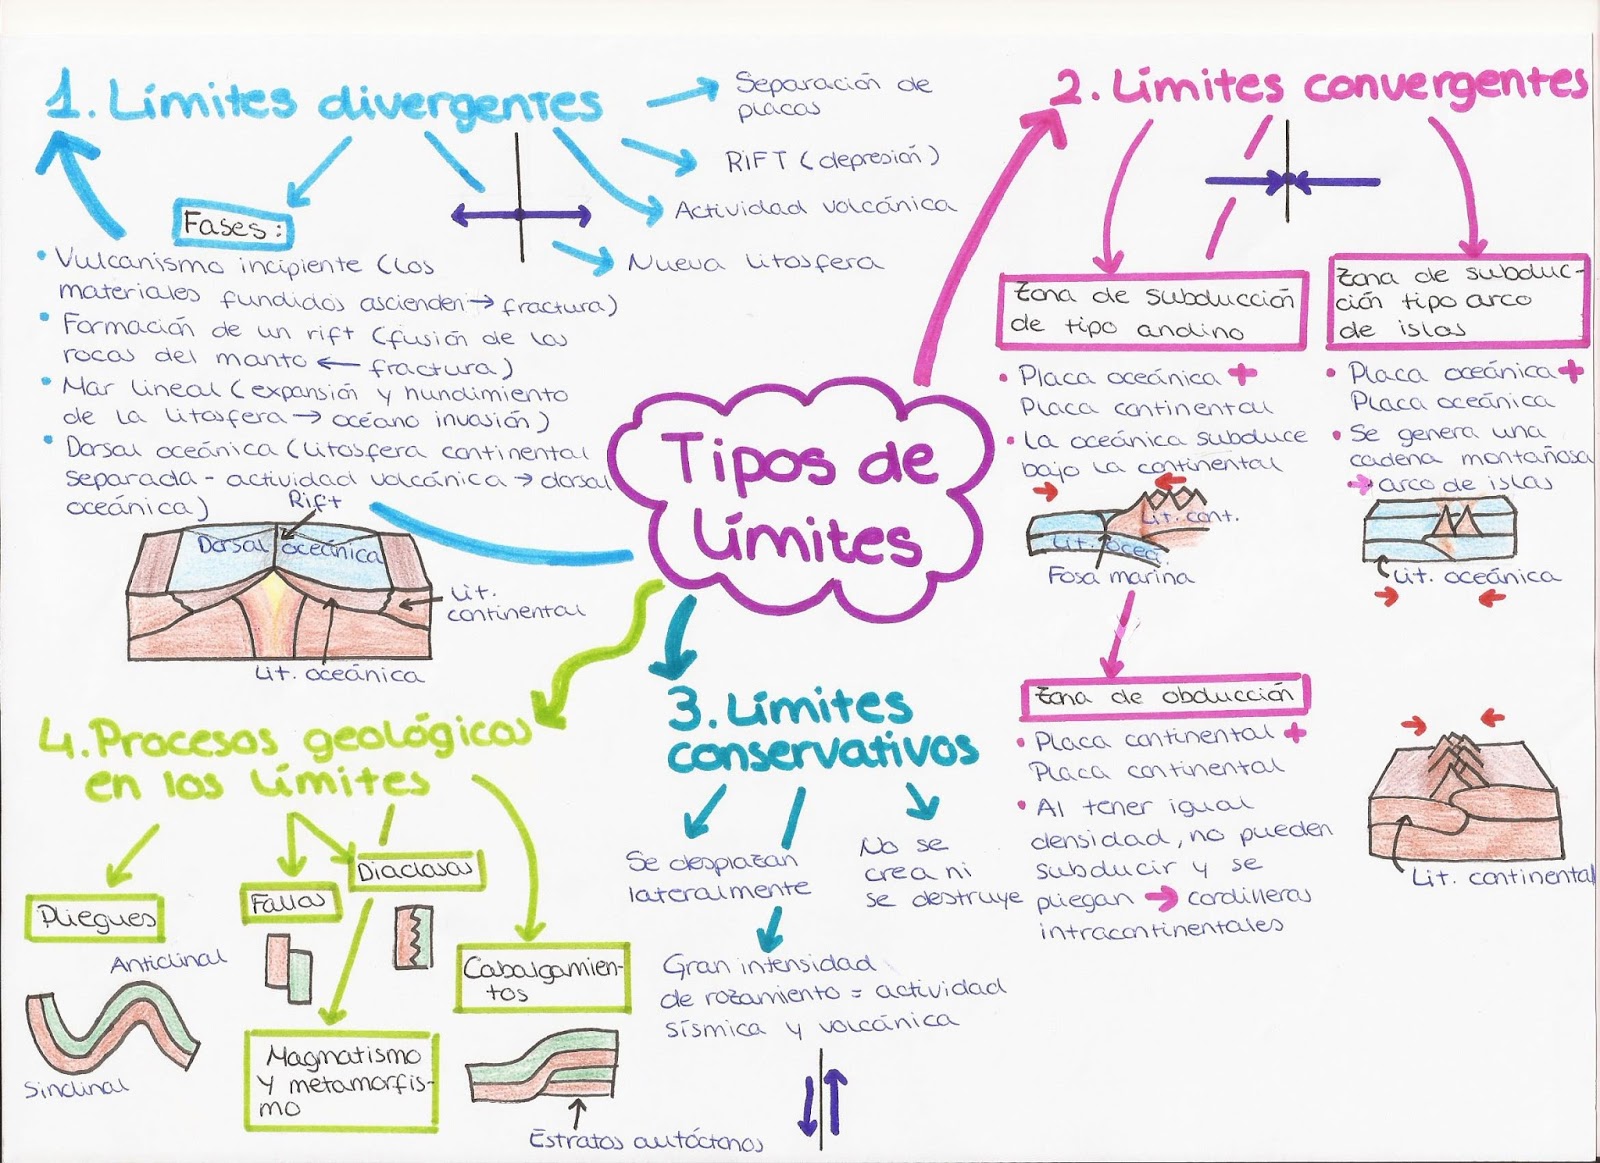 Tipos de
Límites
1. Límites divergentes
Separación de
placas
RIFT (depresión)
Actividad volcánica
Nueva litosfera
Fases:
• Vulcanismo incipiente (los
materiales fundidos ascienden → fractura)
• Formación de un rift (fusión de las
rocas del manto ← fractura)
• Mar lineal (expansión y hundimiento
de la litosfera → océano invasión)
• Dorsal oceánica (litosfera continental
separada - actividad volcánica → dorsal
oceánica)
Rift
Dorsal oceánica
Lit.
continental
Lit. oceánica
2. Límites convergentes
Zona de subducción
de tipo andino
• Placa oceánica +
Placa continental
• La oceánica subduce
bajo la continental
Lit. cont.
Lit. oceá.
Fosa marina
Zona de subduc-
ción tipo arco
de islas
• Placa oceánica +
Placa oceánica
• Se genera una
cadena montañosa
→ arco de islas
Lit. oceánica
Zona de obducción
• Placa continental +
Placa continental
• Al tener igual
densidad, no pueden
subducir y se
pliegan → cordilleras
intracontinentales
Lit. continental
3. Límites
conservativos
Se desplazan
lateralmente
No se
crea ni
se destruye
Gran intensidad
de rozamiento = actividad
sísmica y volcánica
4. Procesos geológicos
en los límites
Pliegues
Anticlinal
Sinclinal
Fallas
Diaclasas
Magmatismo
y metamorfis-
mo
Cabalgamien-
tos
Estratos autóctonos